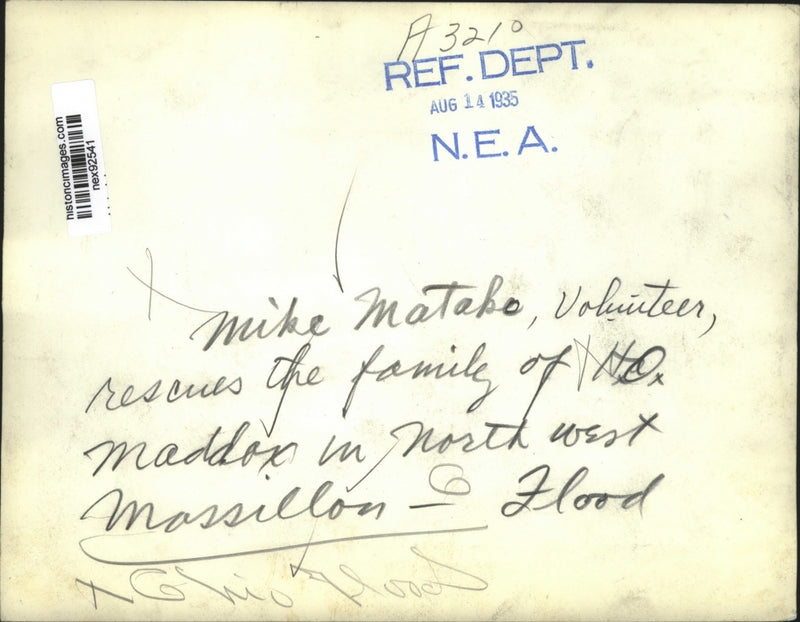 A3210
REF. DEPT.
AUG 14 1935
N. E. A.
historicimages.com
nex92541
Mike Matako, Volunteer,
rescues the family of H.O.
Maddox in North west
Massillon - O Flood
x Ohio Flood